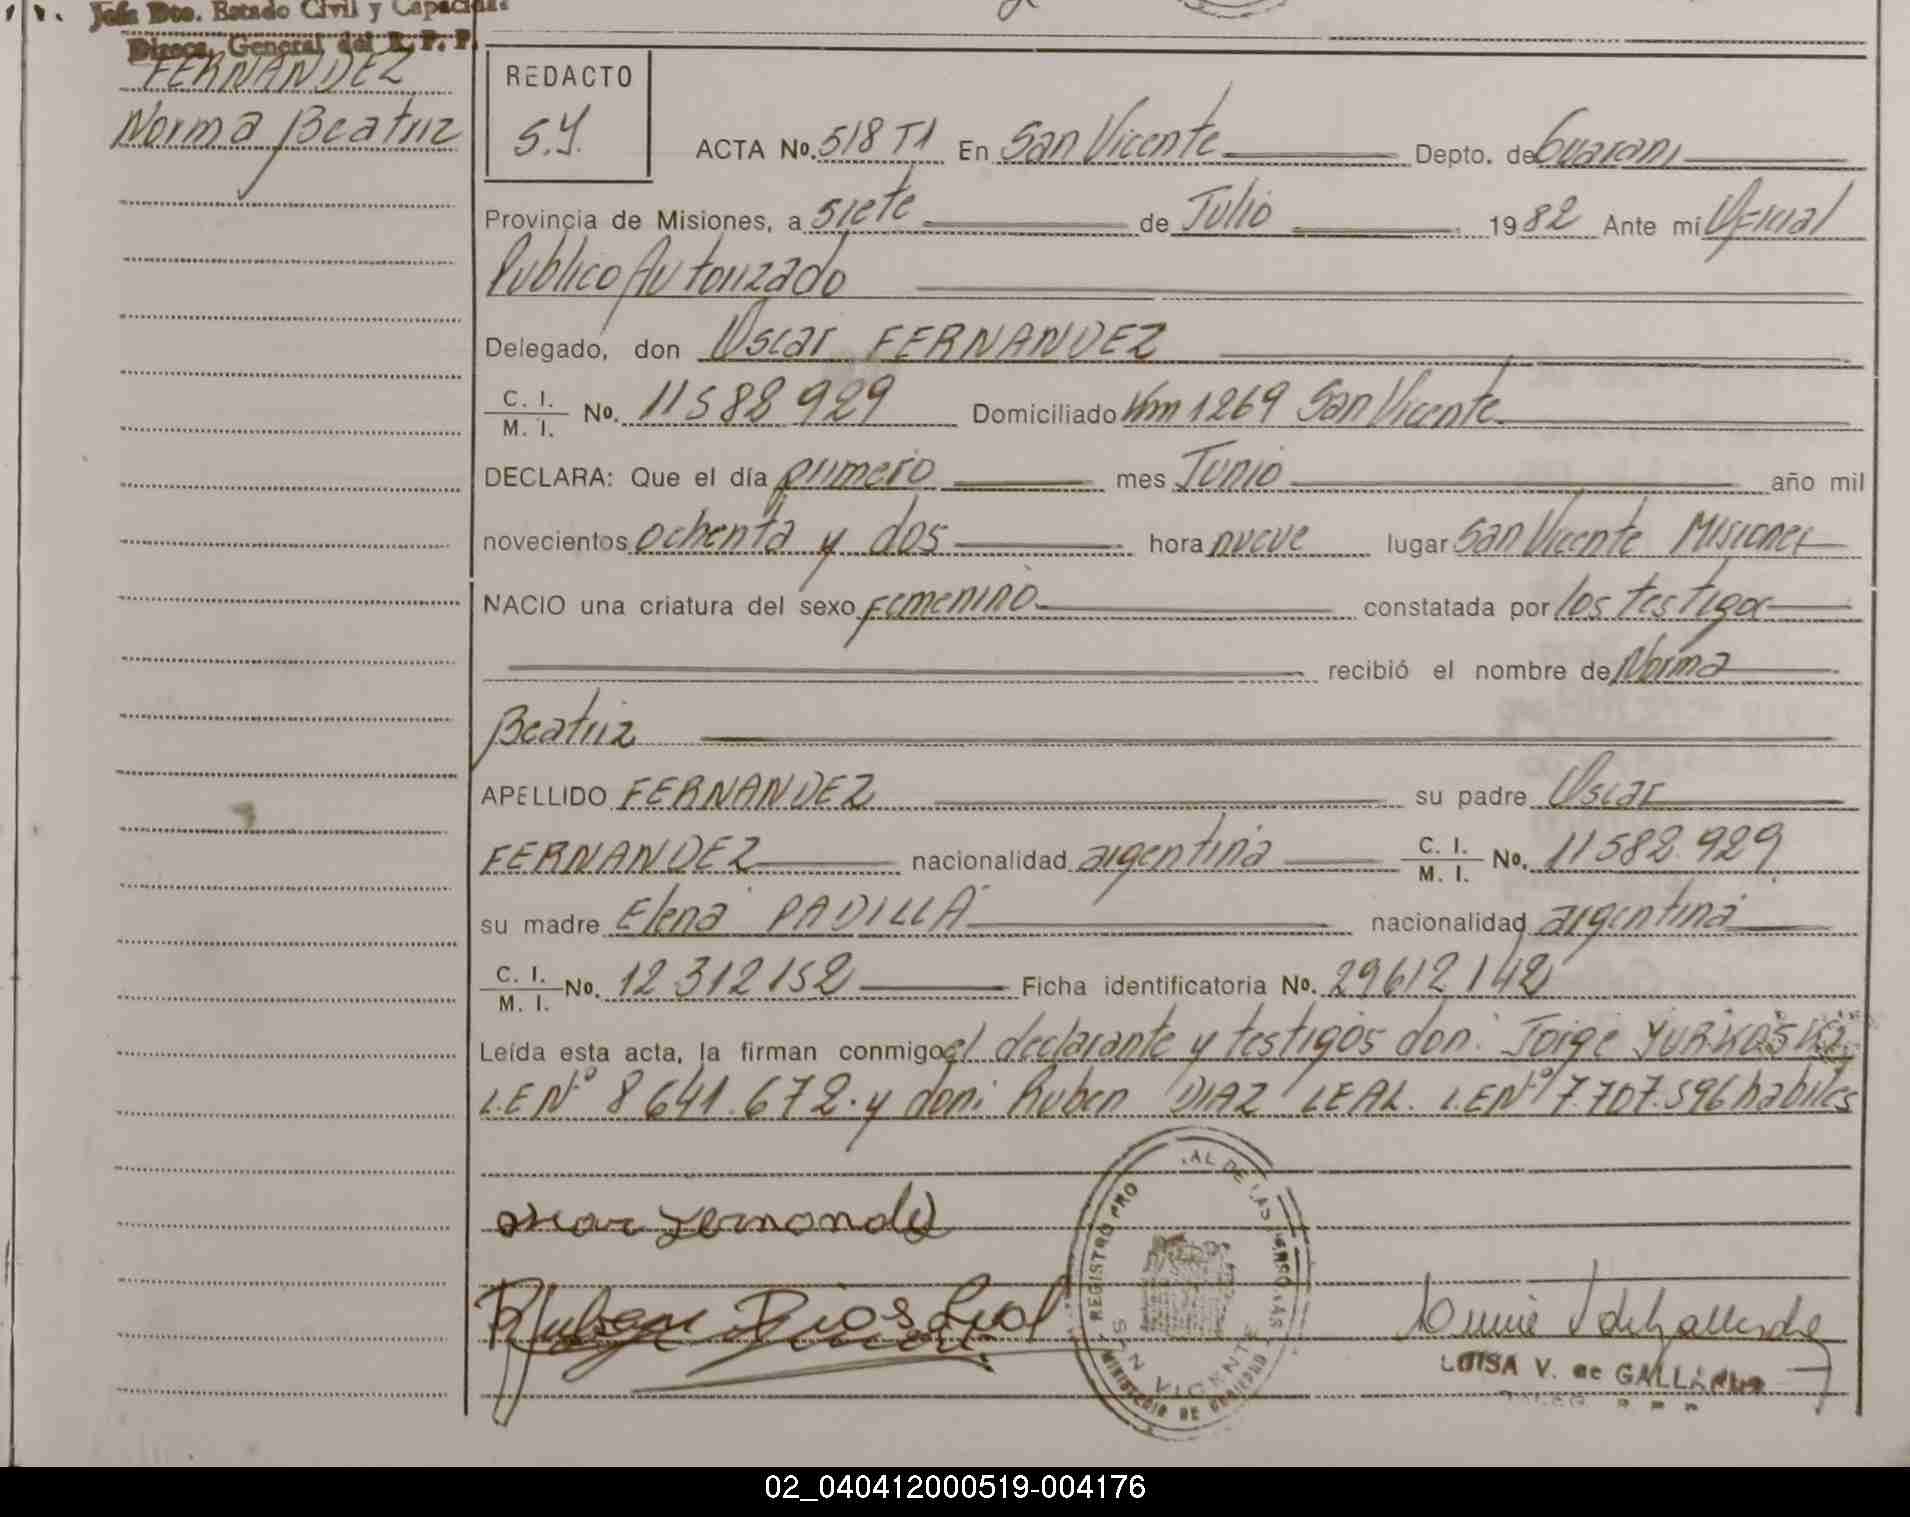 Jefa Dto. Estado Civil y Capacidad
Direcc. General del R. P. P.
FERNANDEZ
Norma Beatriz
REDACTO
S.Y.
ACTA No. 518 T1 En San Vicente Depto. de Guarani
Provincia de Misiones, a siete de Julio 1982 Ante mí Oficial
Publico Autorizado
Delegado, don Oscar FERNANDEZ
C. I.
M. I. No. 11 588 929 Domiciliado Km 1269 San Vicente
DECLARA: Que el día primero mes Junio año mil
novecientos ochenta y dos hora nueve lugar San Vicente Misiones
NACIO una criatura del sexo Femenino constatada por los testigos
recibió el nombre de Norma
Beatriz
APELLIDO FERNANDEZ su padre Oscar
FERNANDEZ nacionalidad argentina C. I.
M. I. No. 11 582.929
su madre Elena PADILLA nacionalidad argentina
C. I.
M. I. No. 12 312 152 Ficha identificatoria No. 29612142
Leída esta acta, la firman conmigo el declarante y testigos don: Jorge YURKOSKI
L.E Nº 8 641.672. y don: Ruben DIAZ LEAL. L.E Nº 7.707.596 habiles
oscar Fernandez
REGISTRO PRO AL DE LAS PERSONAS
SAN VICENTE
MINISTERIO DE GOBIERNO
LUISA V. de GALLARDO
02_040412000519-004176